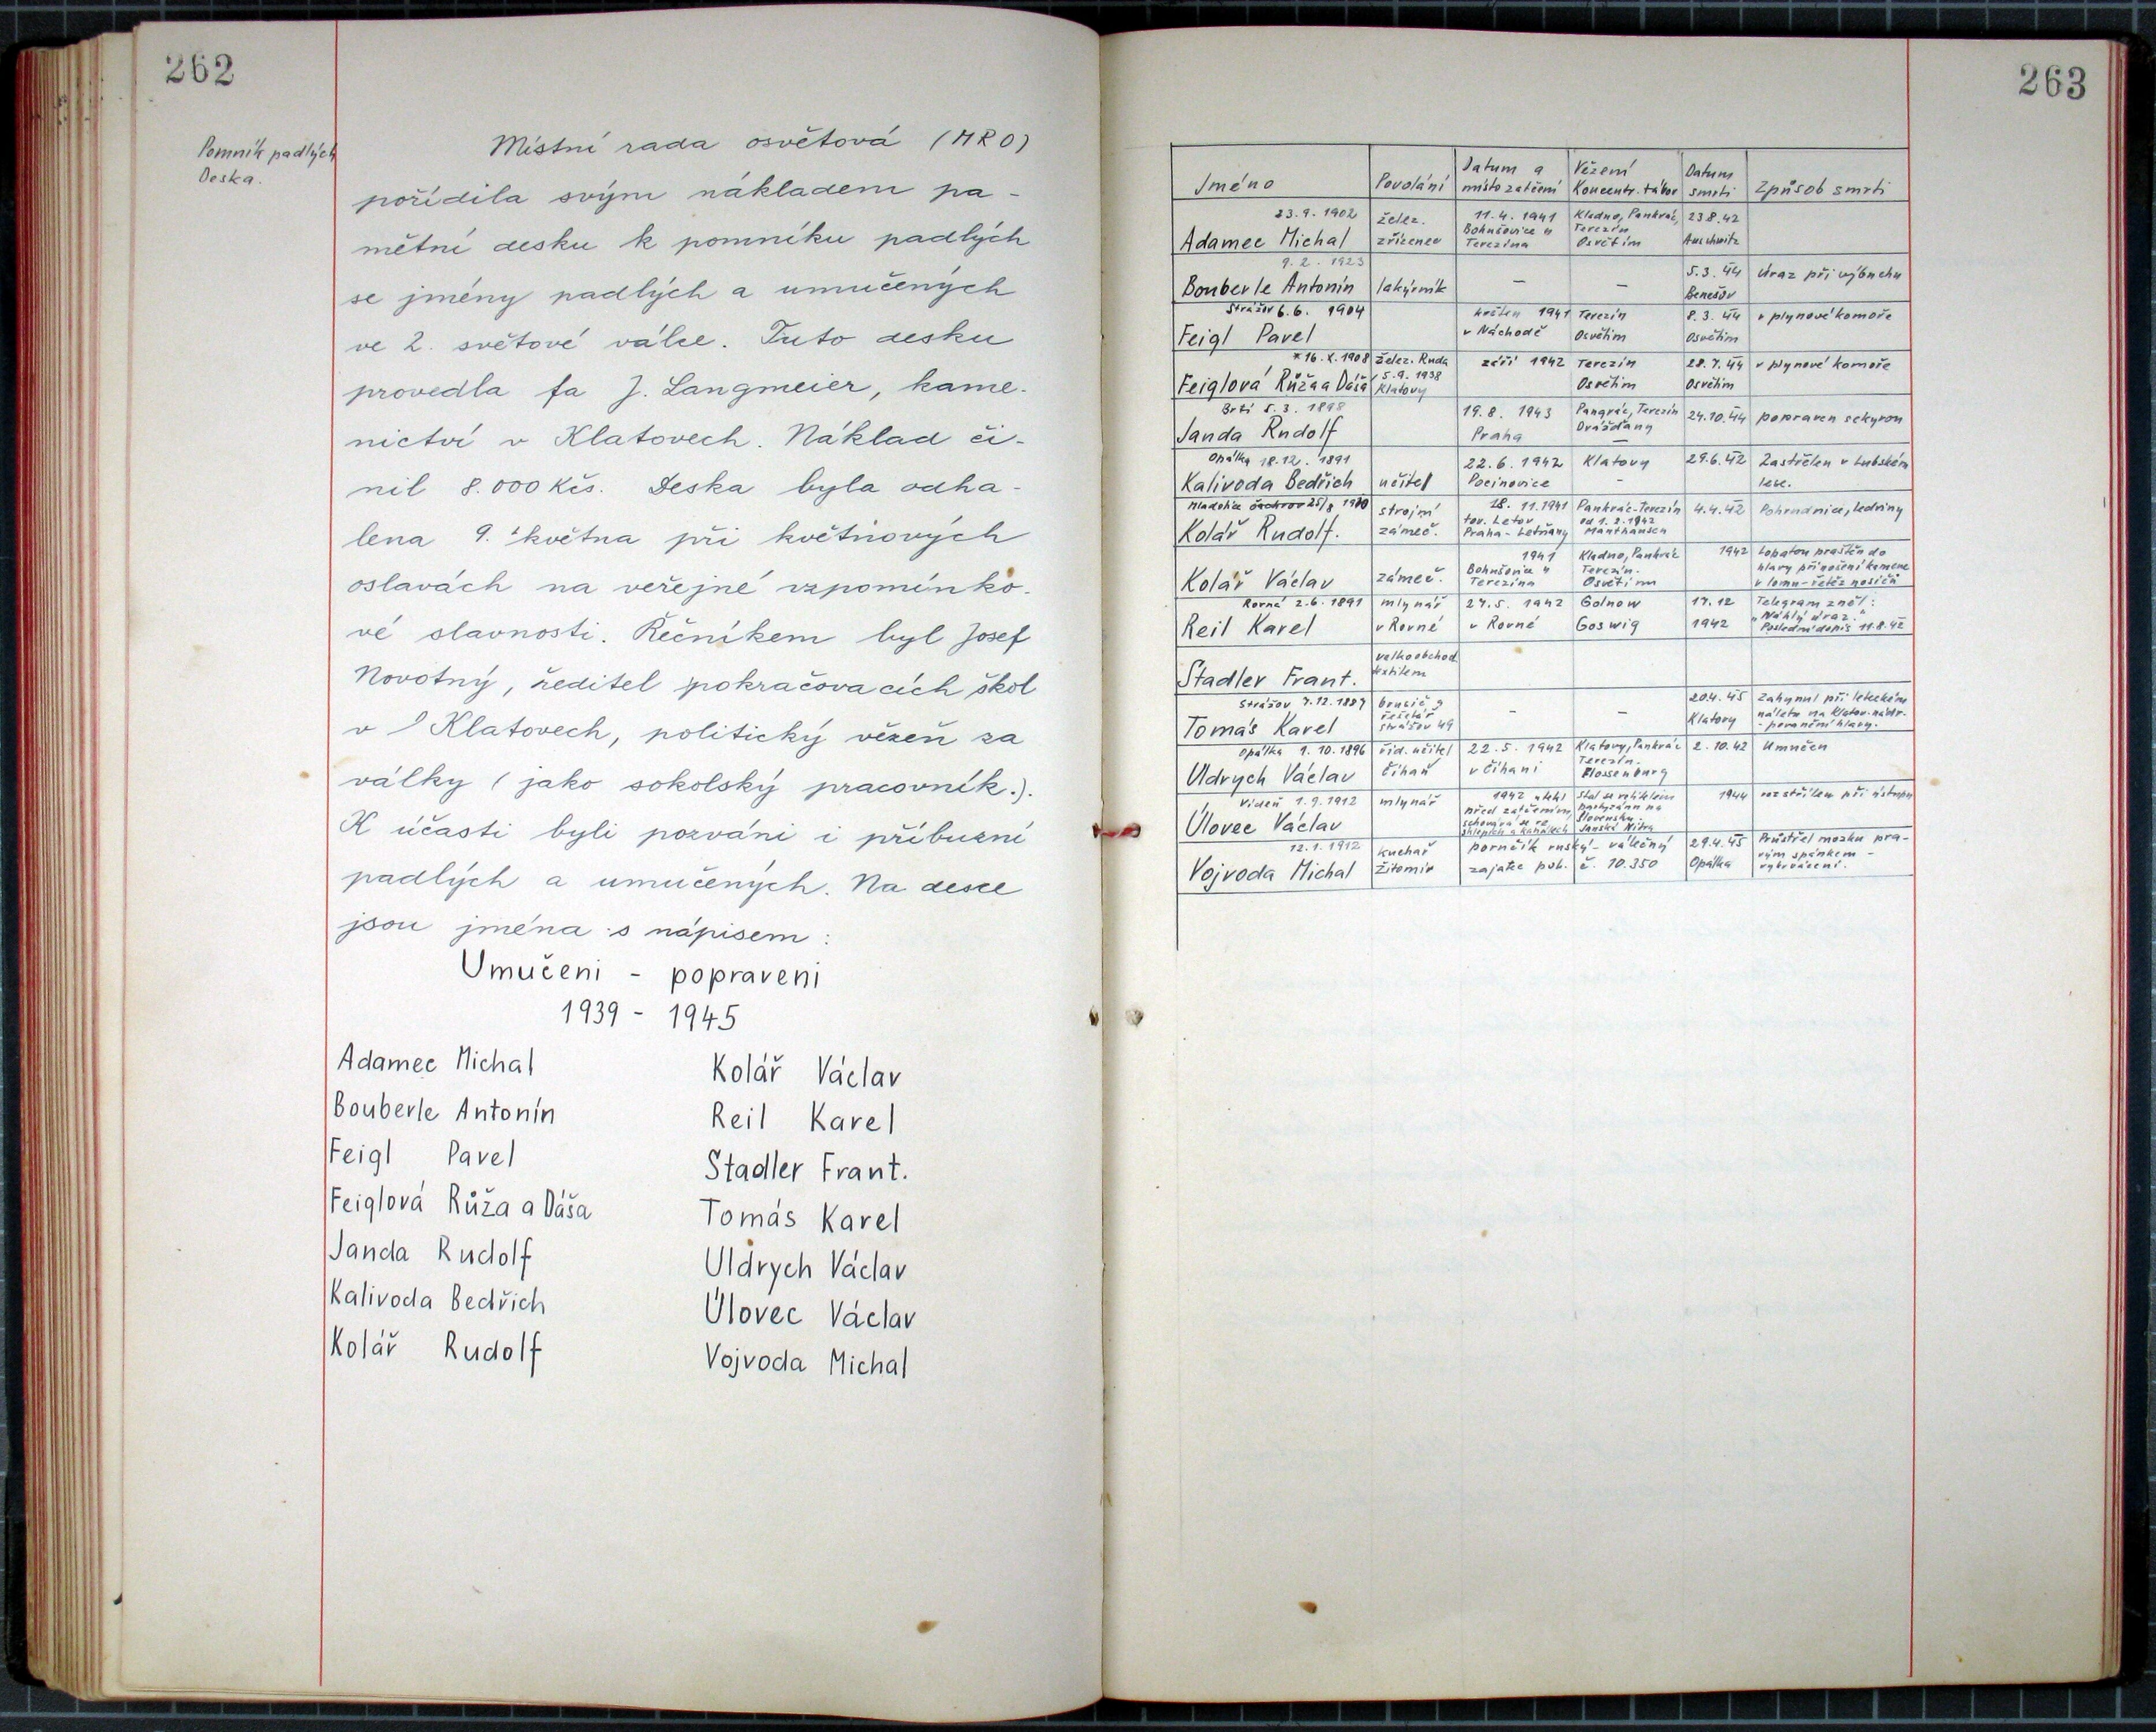 262
Pomník padlých
Deska.
Místní rada osvětová (MRO)
pořídila svým nákladem pa-
mětní desku k pomníku padlých
se jmény padlých a umučených
ve 2. světové válce. Tuto desku
provedla fa J. Langmeier, kame-
nictví v Klatovech. Náklad či-
nil 8.000 Kčs. Deska byla odha-
lena 9. května při květnových
oslavách na veřejné vzpomínko-
vé slavnosti. Řečníkem byl Josef
Novotný, ředitel pokračovacích škol
v Klatovech, politický vězeň za
války (jako sokolský pracovník.).
K účasti byli pozváni i příbuzní
padlých a umučených. Na desce
jsou jména s nápisem:
Umučeni - popraveni
1939 - 1945
Adamec Michal
Bouberle Antonín
Feigl Pavel
Feiglová Růža a Dáša
Janda Rudolf
Kalivoda Bedřich
Kolář Rudolf
Kolář Václav
Reil Karel
Stadler Frant.
Tomás Karel
Uldrych Václav
Úlovec Václav
Vojvoda Michal
263
Jméno Povolání Datum a místo zatčení Vězení Koncentr. tábor Datum smrti Způsob smrti
23.9.1902 Adamec Michal želez. zřízenec 11.4.1941 Bohušovice u Terezína Kladno, Pankrác, Terezín Osvětim 23.8.42 Auschwitz
9.2.1923 Bouberle Antonín lakýrník – – 5.3.44 Benešov Úraz při výbuchu
Strážov 6.6. 1904 Feigl Pavel 1941 v Náchodě Terezín Osvětim 8.3.44 Osvětim v plynové komoře
*16.X.1908 Feiglová Růža a Dáša želez. Ruda 5.9.1938 Klatovy září 1942 Terezín Osvětim 28.7.44 Osvětim v plynové komoře
Brtí 5.3.1898 Janda Rudolf 19.8.1943 Praha Pangrác, Terezín Drážďany – 24.10.44 popraven sekyrou
Opálka 18.12.1891 Kalivoda Bedřich učitel 22.6.1942 Pocinovice Klatovy – 29.6.42 Zastřelen v Lubském lese.
Čachrov 25/8 1900 Kolář Rudolf. strojní zámeč. 18.11.1941 tov. Letov Praha-Letňany Pankrác-Terezín od 1.2.1942 Manthausen 4.4.42 Pohrudnice, ledviny
Kolář Václav zámeč. 1941 Bohušovice u Terezína Kladno, Pankrác Terezín. Osvětim 1942 Lopatou praštěn do hlavy při nošení kamene v lomu - řetěz nosičů
Rovná 2.6.1891 Reil Karel mlynář v Rovné 27.5.1942 v Rovné Golnow Goswig 17.12 1942 Telegram zněl: „Náhlý úraz." Poslední dopis 11.8.42
Stadler Frant. velkoobchod textilem
Strážov 7.12.1887 Tomás Karel brusič, řešetář strážov 49 – – 20.4.45 Klatovy Zahynul při leteckém náletu na Klatov. nádr. - poranění hlavy.
Opálka 1.10.1896 Uldrych Václav říd. učitel Číhaň 22.5.1942 v Číhani Klatovy, Pankrác Terezín. Flossenburg 2.10.42 Umučen
Vídeň 1.9.1912 Úlovec Václav mlynář 1942 utekl před zatčením, schovává se ve sklepích a kanálech Stal se velitelem partyzánů na Slovensku. Janské Nitra 1944 rozstřílen při ústupu
12.1.1912 Vojvoda Michal kuchař Žitomir poručík ruský - válečný zajatec poh. č. 10.350 29.4.45 Opálka Průstřel mozku pra- vým spánkem - vykrvácení.